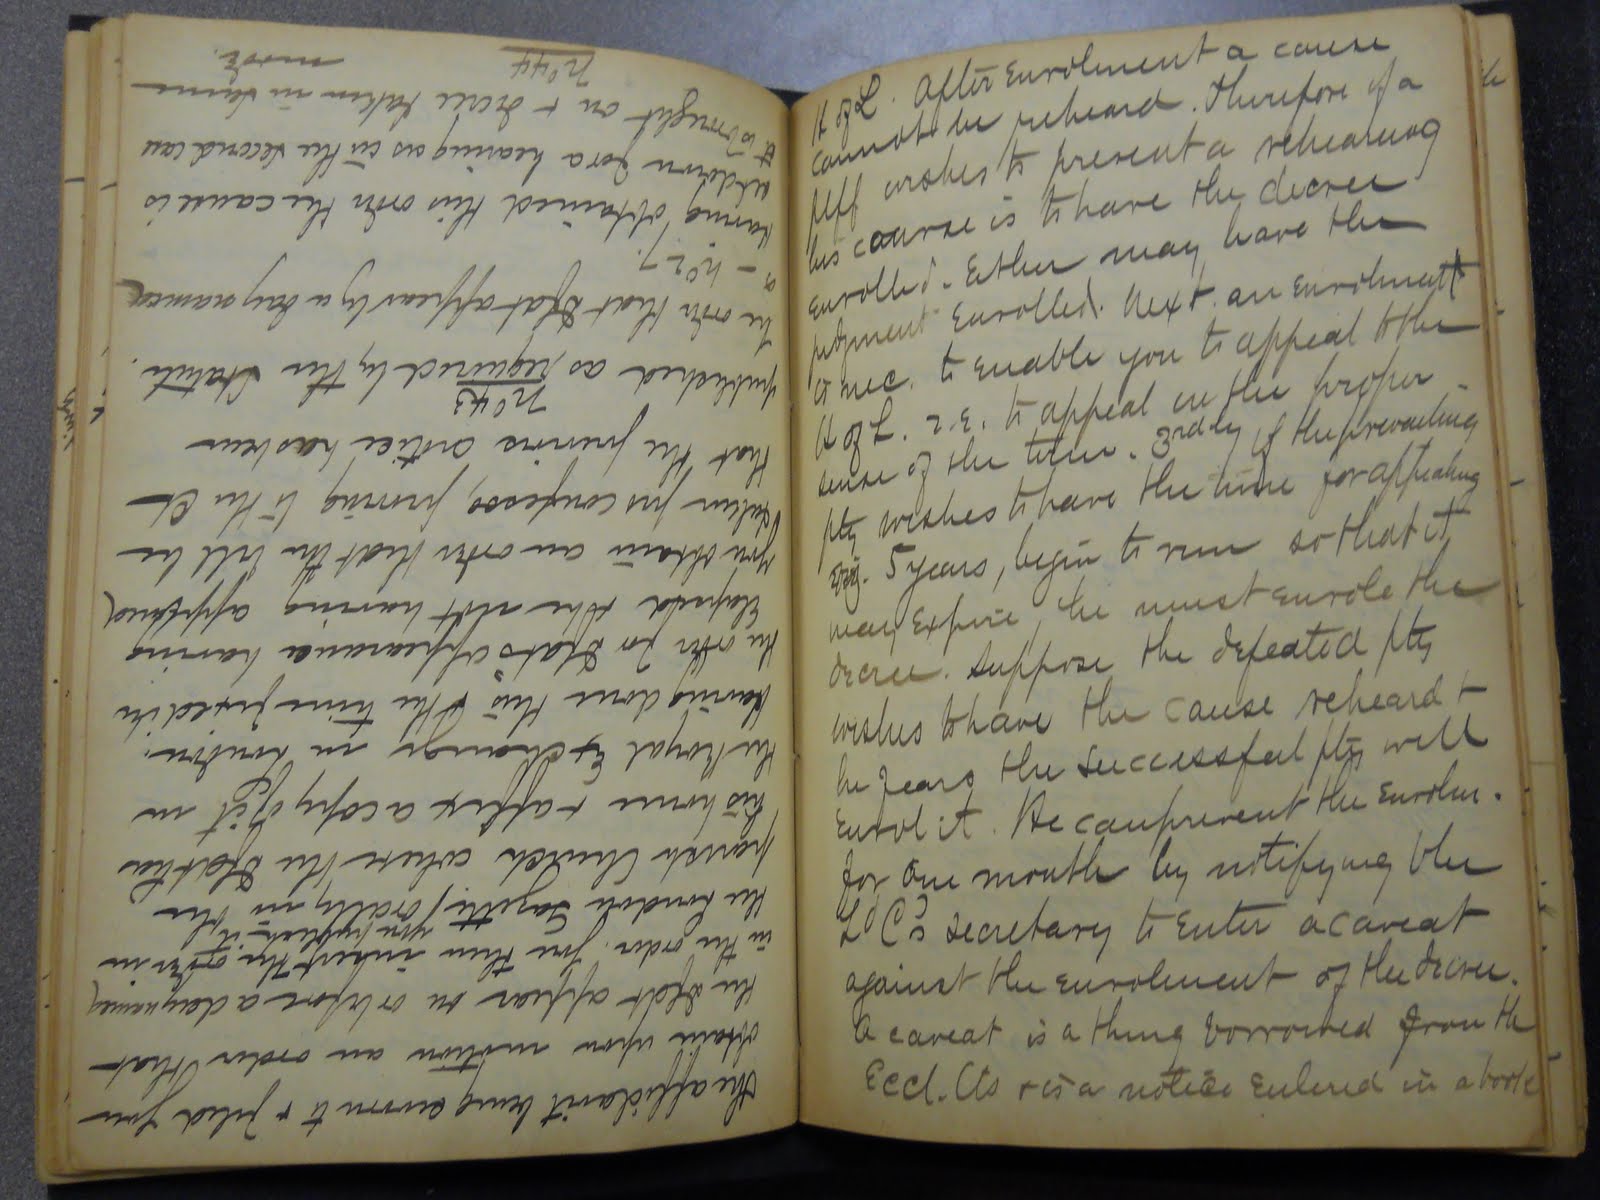 H of L. After enrolment a cause
cannot be reheard. Therefore if a
plff wishes to present a rehearing
his course is to have the decree
enrolled. Either may have the
judgment enrolled. Next. an enrolment
is nec. to enable you to appeal to the
H of L. i.e. to appeal in the proper
sense of the term. 3rdly if the prevailing
pty wishes to have the time for appealing
5 years, begin to run so that it
may expire, he must enrole the
decree. Suppose the defeated pty
wishes to have the cause reheard +
he fears the successful pty will
enrol it. He can prevent the enrolm.
for one month by notifying the
Ld C's secretary to enter a caveat
against the enrolment of the decree.
A caveat is a thing borrowed from the
Eccl. Cts + is a notice entered in a book
The affidavit being sworn to + filed you
obtain upon motion an order that
the dfdt appear on or before a day named
in the order. You then insert the order in
the London Gazette, you publish it orally in the
parish church where the dfdt has
his house + affix a copy of it in
the Royal Exchange in London.
Having done this + the time fixed in
the order for dfdt's appearance having
elapsed + he not having appeared,
you obtain an order that the bill be
taken pro confesso, proving to the Ct
that the previous notice has been
published as required by the Statute.
No 43
The order that dfdt appear by a day named
- No 27.
Having obtained this order the cause is
set down for a hearing as in the second case
+ is brought on + decree taken in same
mode.
No 44